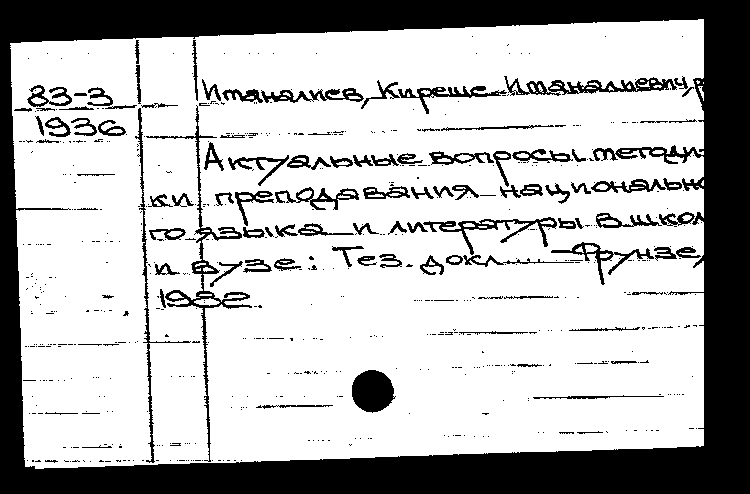 83-3
1936
Иманалиев, Киреше Иманалиевич, р
Актуальные вопросы методи-
ки преподавания национально
го языка и литературы в школ
и вузе: Тез. докл.... - Фрунзе,
1982.